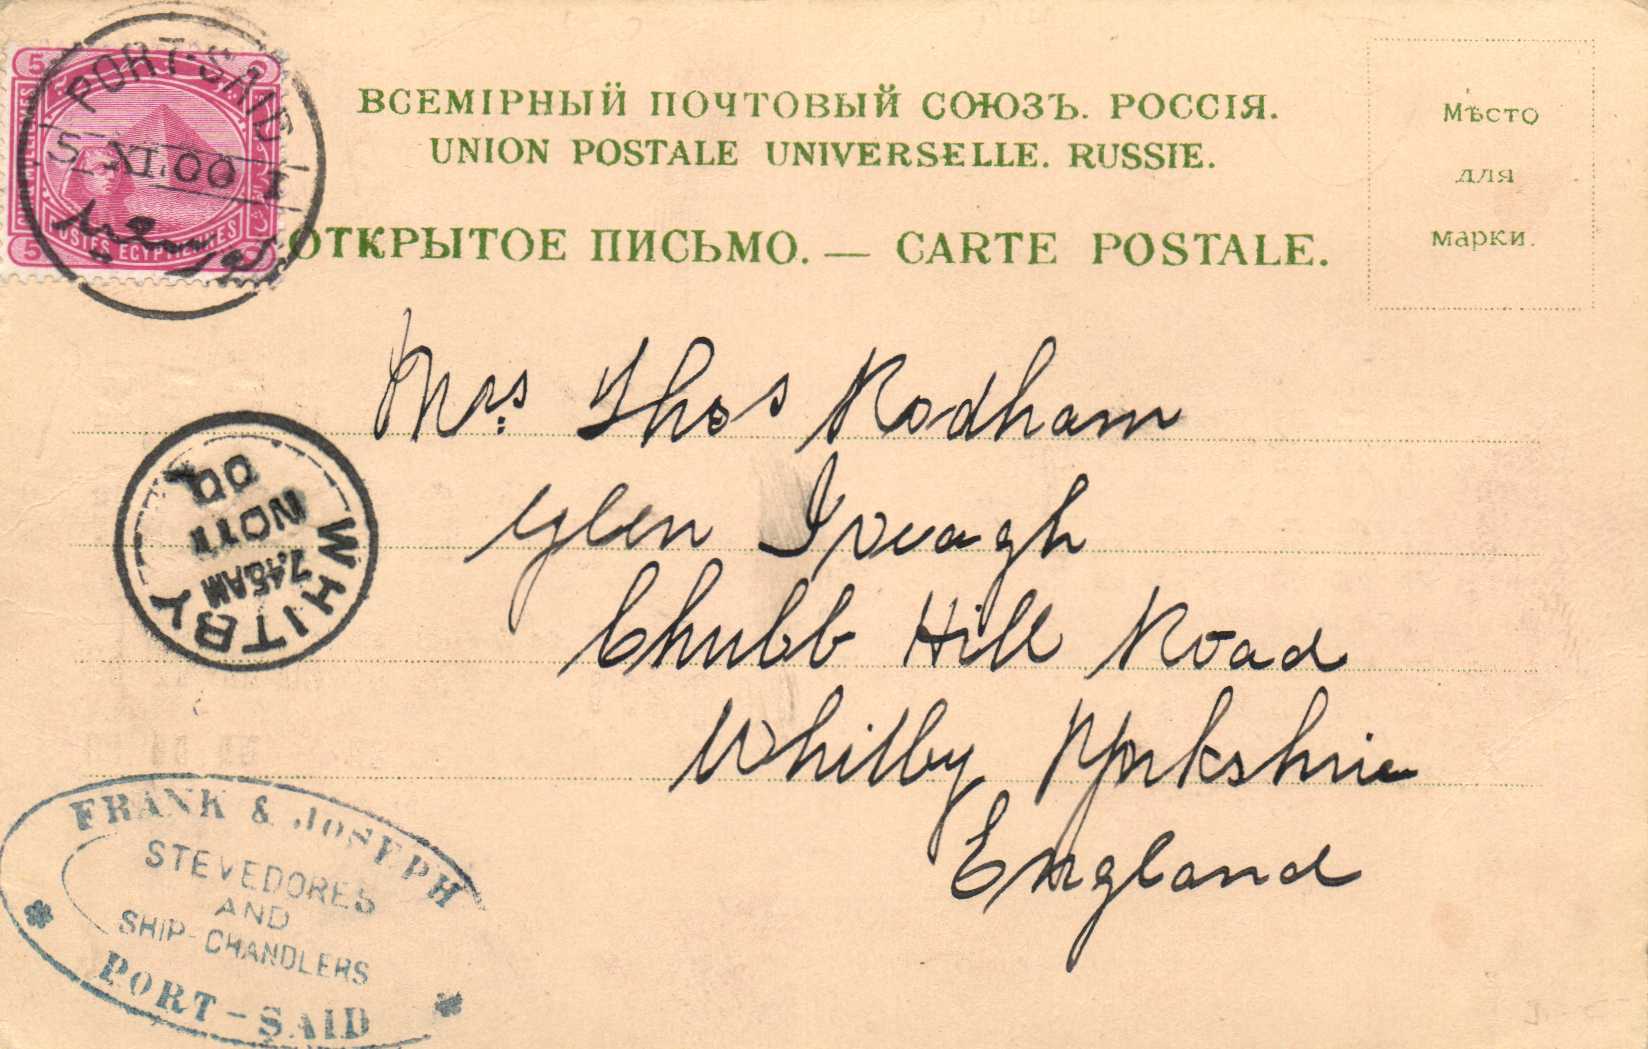 5
POSTES EGYPTIENNES
5
PORT-SAID
5 XI 00 I
ВСЕМІРНЫЙ ПОЧТОВЫЙ СОЮЗЪ. РОССІЯ.
UNION POSTALE UNIVERSELLE. RUSSIE.
ОТКРЫТОЕ ПИСЬМО. — CARTE POSTALE.
Мѣсто
для
марки.
Mrs Thos Rodham
Glen Iveagh
Chubb Hill Road
Whitby Yorkshire
England
WHITBY
7.45AM
NO 11
00
FRANK & JOSEPH
STEVEDORES
AND
SHIP-CHANDLERS
PORT-SAID